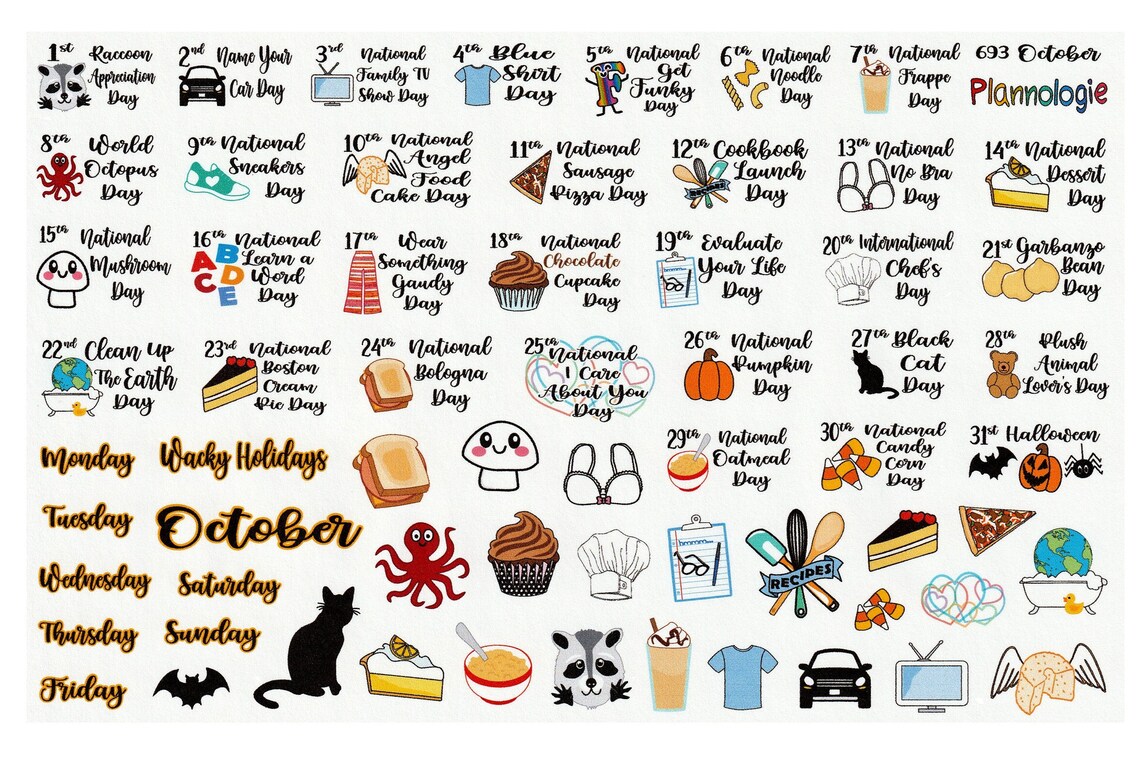 1st Raccoon
Appreciation
Day
2nd Name Your
Car Day
3rd National
Family TV
Show Day
4th Blue
Shirt
Day
5th National
Get
Funky
Day
6th National
Noodle
Day
7th National
Frappe
Day
693 October
Plannologie
8th World
Octopus
Day
9th National
Sneakers
Day
10th National
Angel
Food
Cake Day
11th National
Sausage
Pizza Day
12th Cookbook
Launch
Day
RECIPES
13th National
No Bra
Day
14th National
Dessert
Day
15th National
Mushroom
Day
16th National
Learn a
Word
Day
A B C D E
17th Wear
Something
Gaudy
Day
18th National
Chocolate
Cupcake
Day
19th Evaluate
Your Life
Day
hmmm...
20th International
Chef's
Day
21st Garbanzo
Bean
Day
22nd Clean Up
The Earth
Day
23rd National
Boston
Cream
Pie Day
24th National
Bologna
Day
25th National
I Care
About You
Day
26th National
Pumpkin
Day
27th Black
Cat
Day
28th Plush
Animal
Lover's Day
Monday
Wacky Holidays
29th National
Oatmeal
Day
30th National
Candy
Corn
Day
31st Halloween
Tuesday
October
hmmm...
RECIPES
Wednesday
Saturday
Thursday
Sunday
Friday